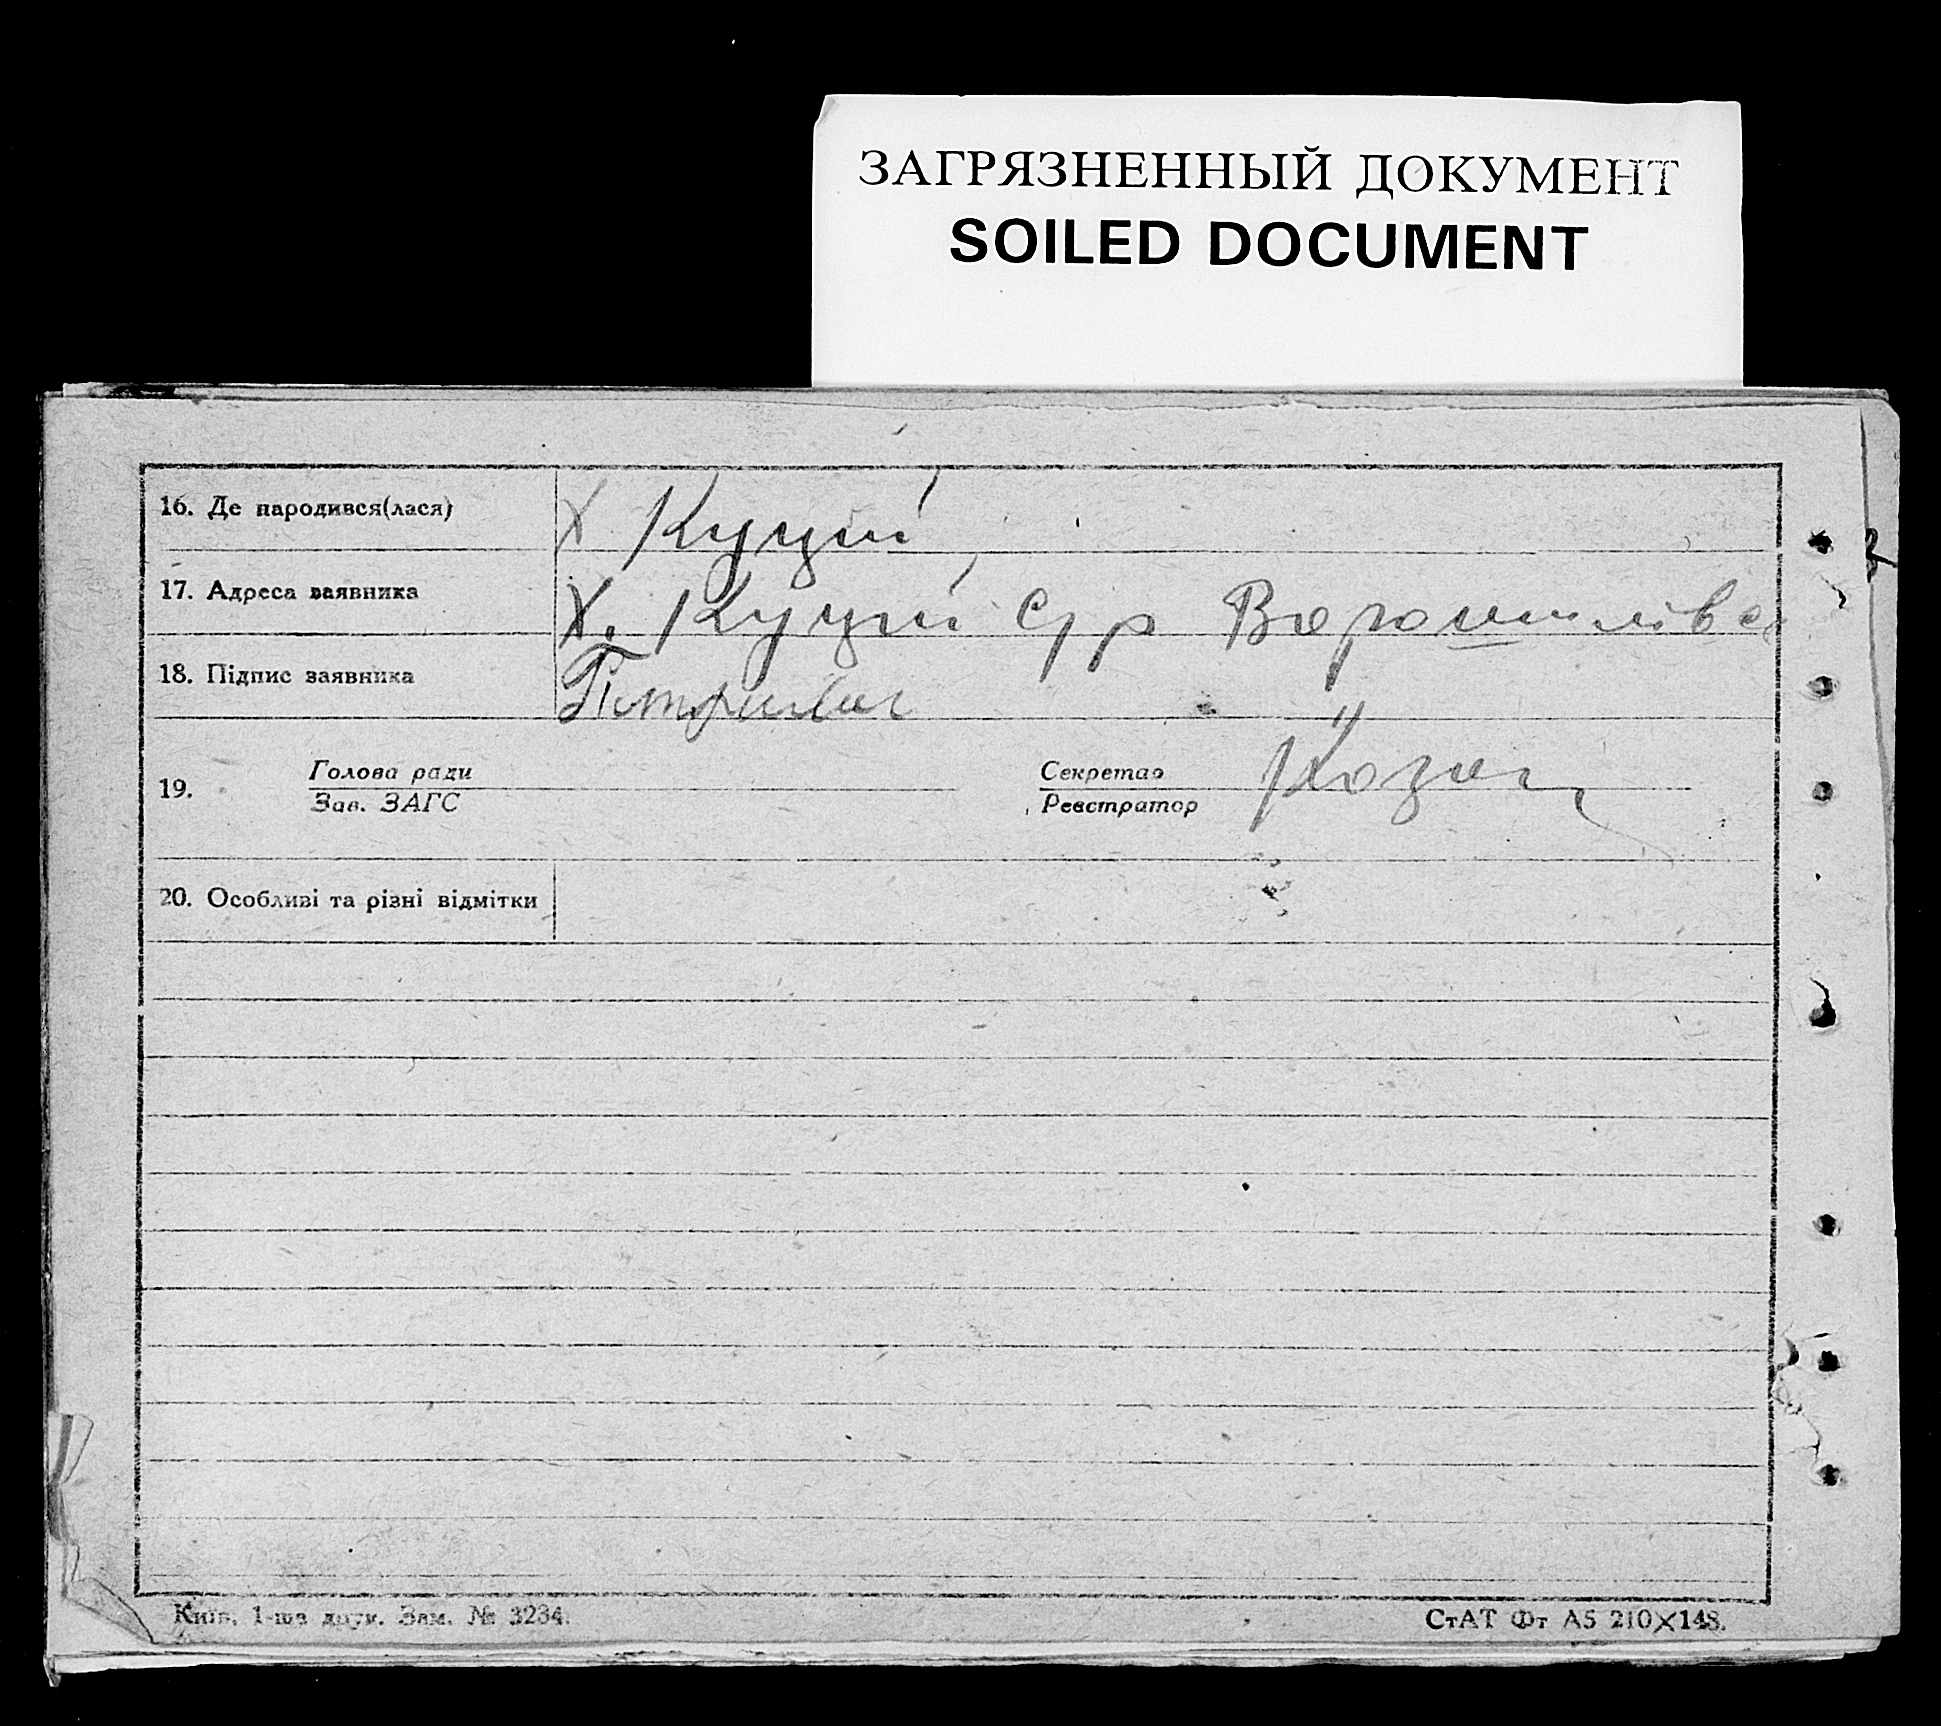 ЗАГРЯЗНЕННЫЙ ДОКУМЕНТ
SOILED DOCUMENT
16. Де народився(лася) Х Куций
17. Адреса заявника Х. Куций С/р Ворошилівса
18. Підпис заявника
19. Голова ради Секретар Козак
Зав. ЗАГС Реєстратор
20. Особливі та різні відмітки
Київ, 1-ша друк. Зам. № 3234.
СтАТ Фт А5 210×148.